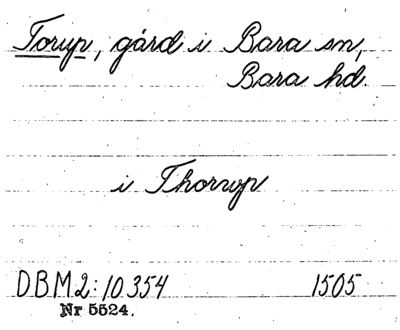 Torup, gård i Bara sn,
Bara hd.
i Thorup
DBM2:10354 1505
Nr 5524.